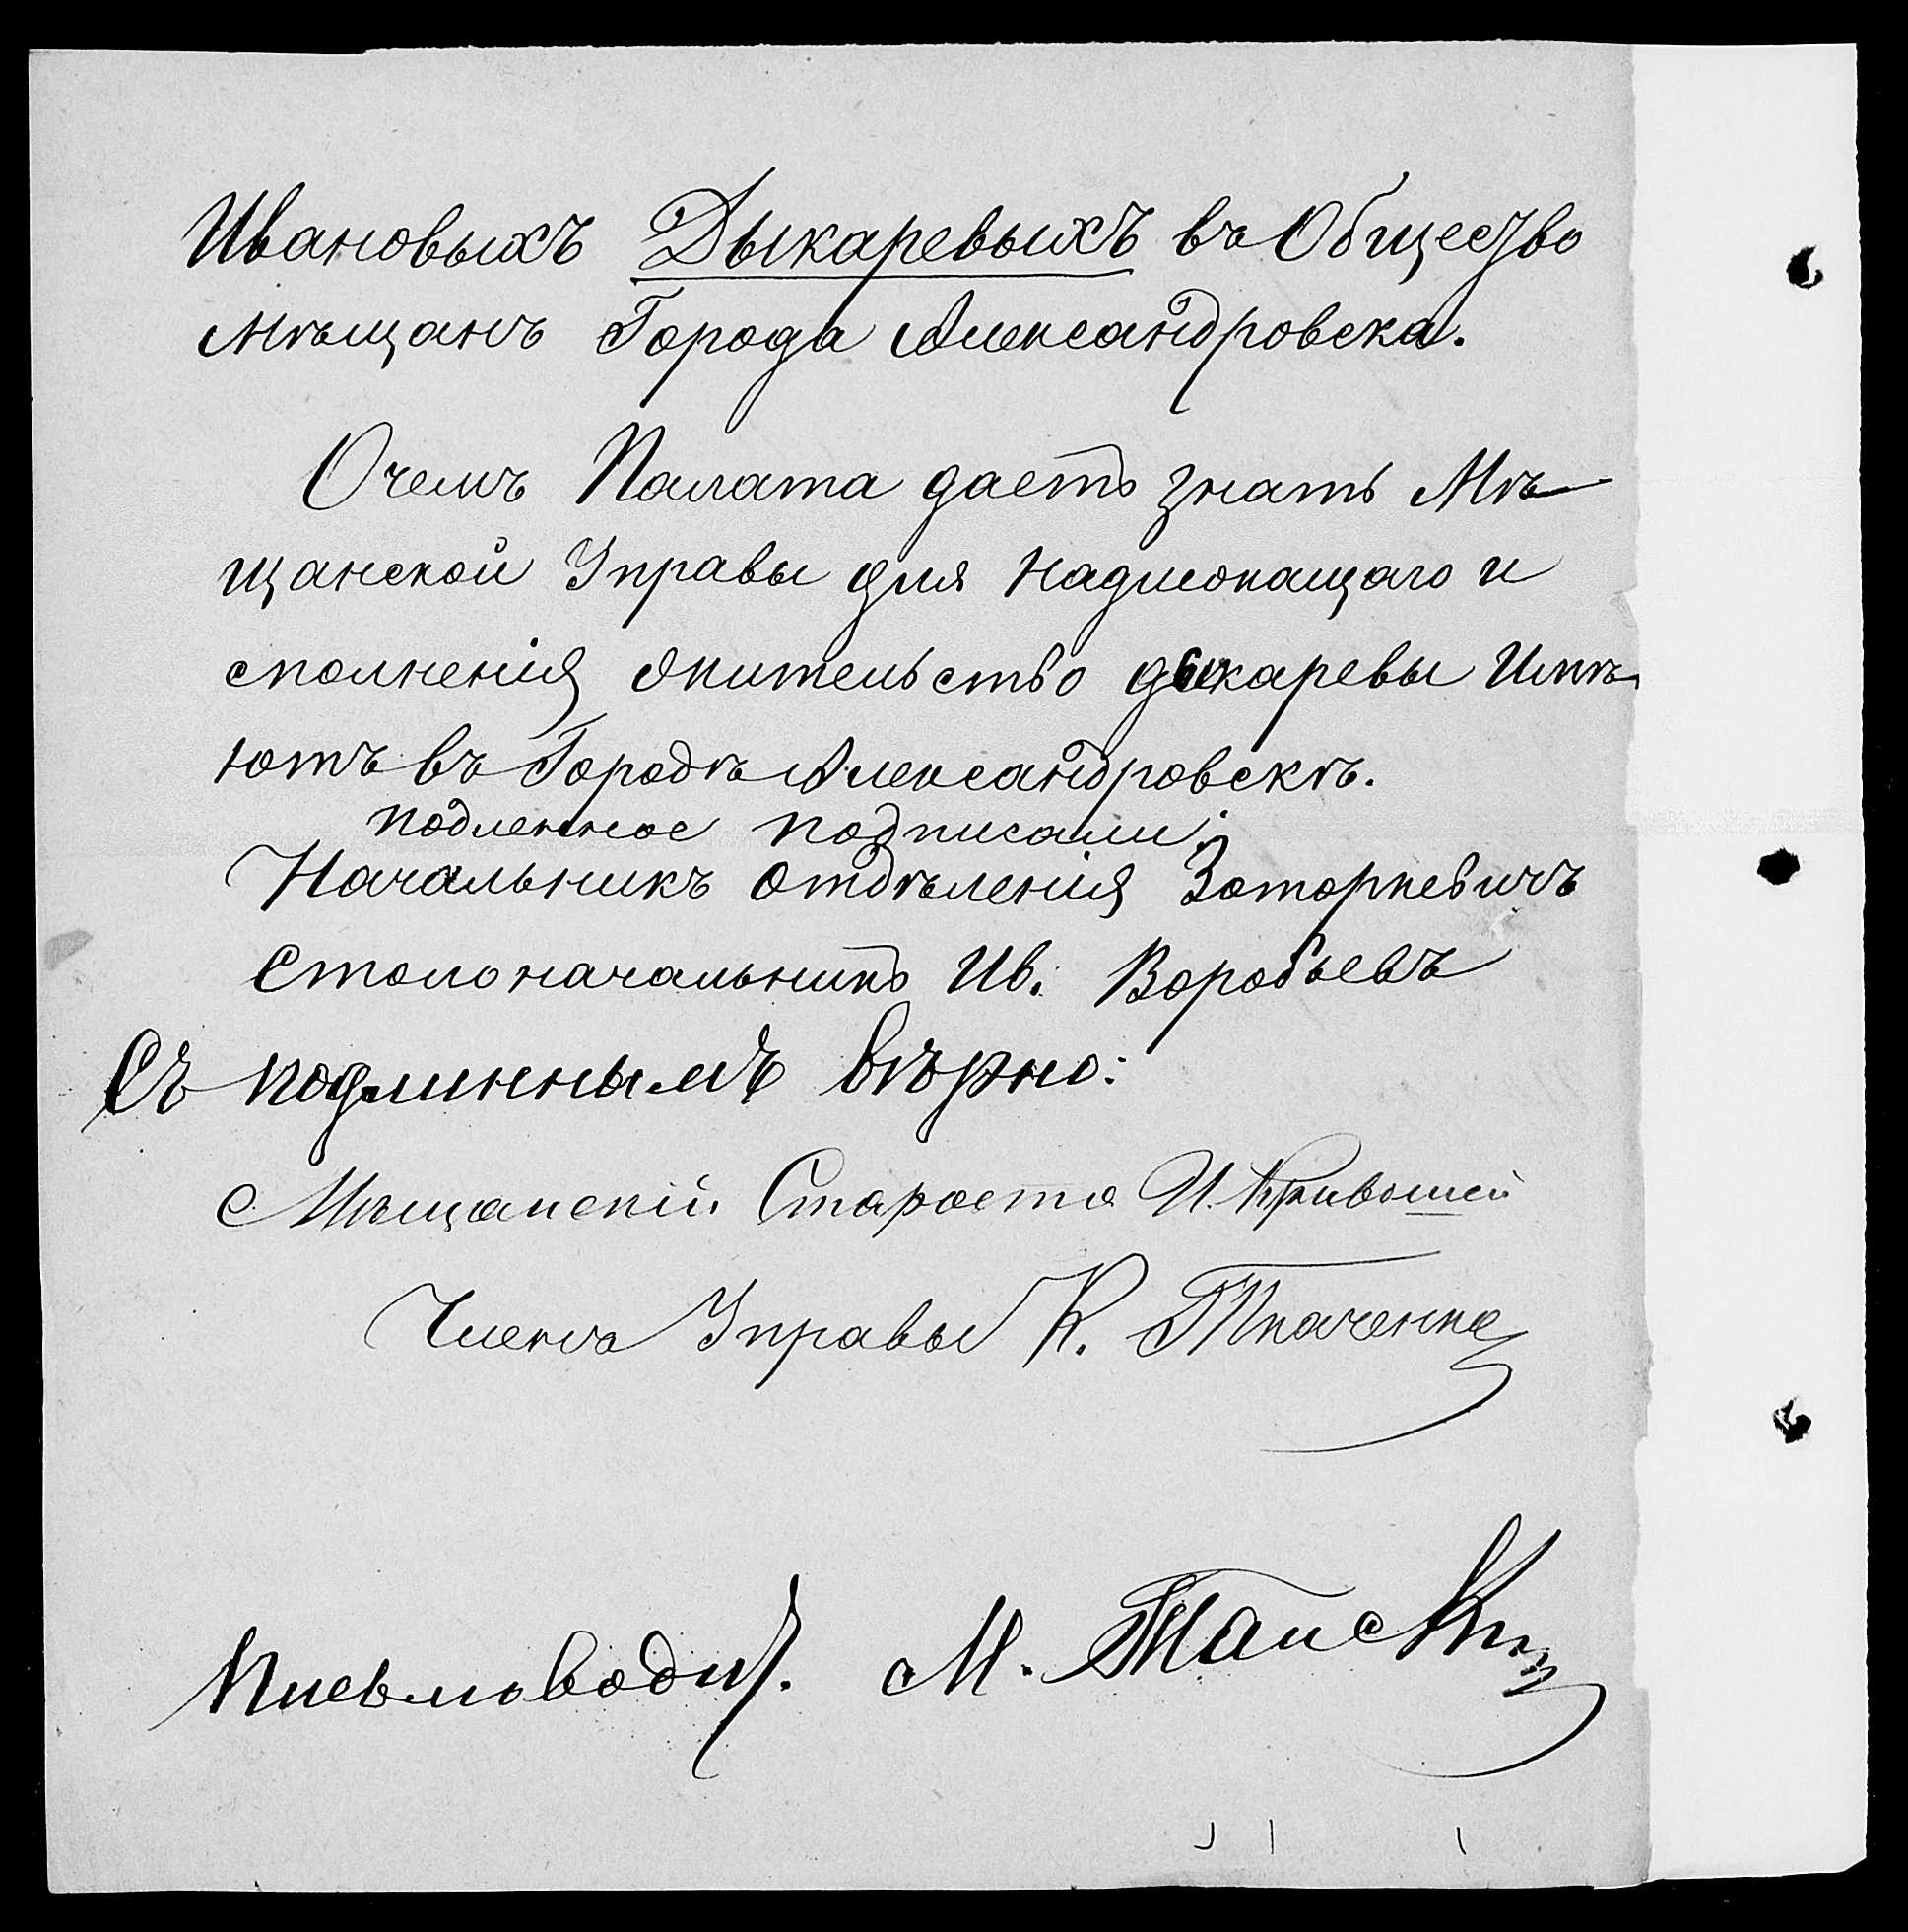 Ивановыхъ Дыкаревыхъ въ Общество
мѣщанъ Города Александровска.
Очемъ Палата даетъ знать Мѣ-
щанской Управы для надлежащаго и
сполненія жительство дыкаревы Имѣ-
ютъ въ Городѣ Александровскѣ.
подленное подписали:
Начальникъ отдѣленія
Столоначальникъ Ив. Воробьевъ
Съ подлиннымъ вѣрно:
Мѣщанскій Староста И. Кривошей
Членъ Управы К. Ткаченко
Письмоводит. М.